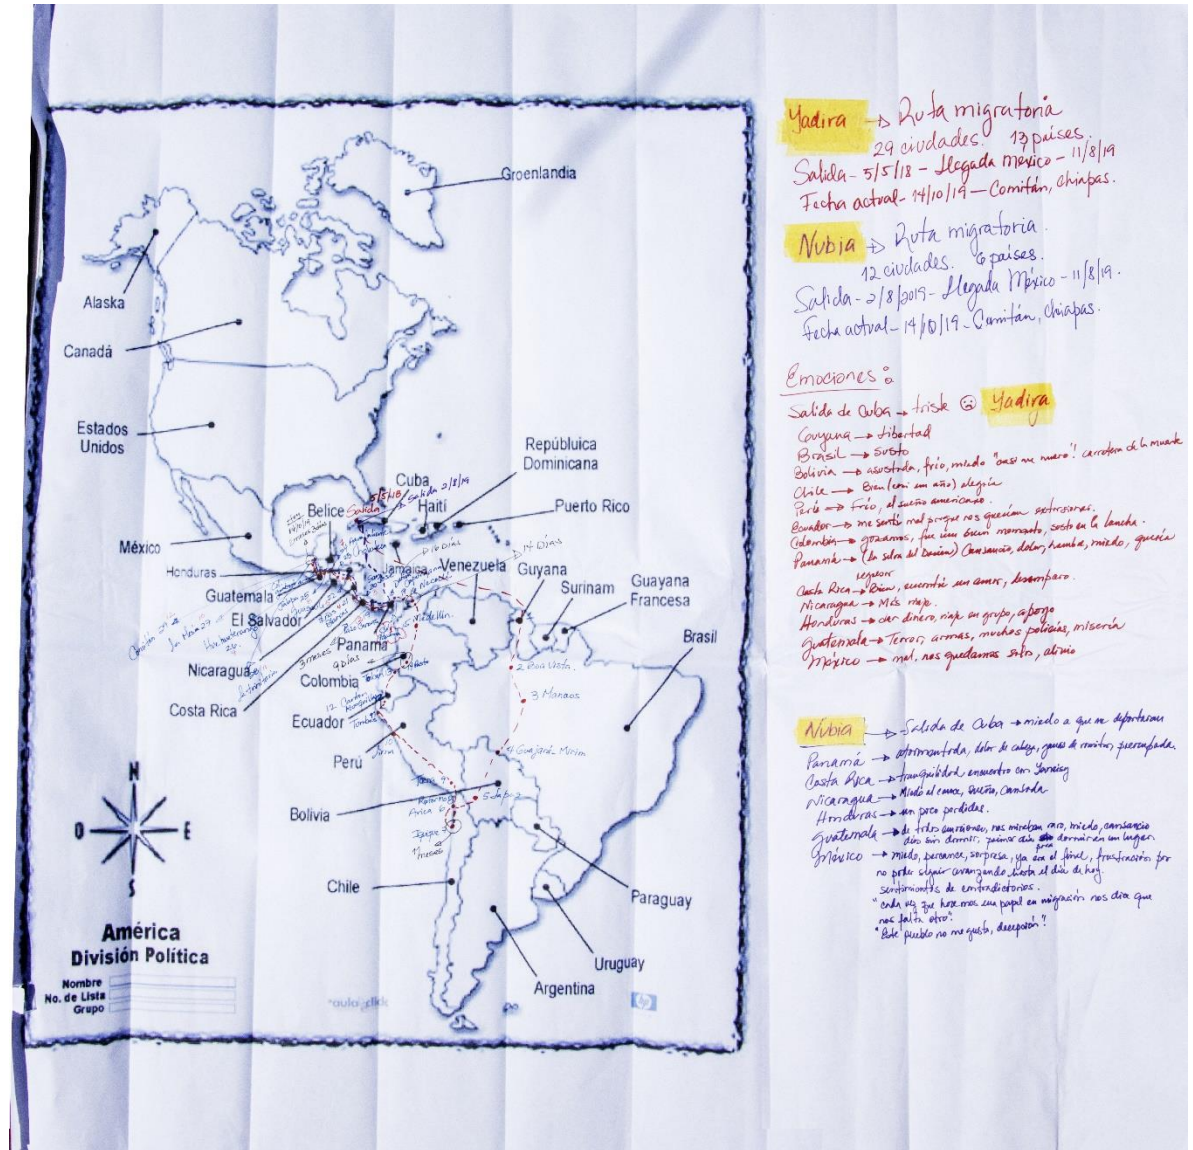 Groenlandia
Alaska
Canadá
Estados
Unidos
Repúbluica
Dominicana
Cuba
5/5/18
Salida
Salida 2/8/19
Haití
Belice
Puerto Rico
México
Honduras
Jamaica
Venezuela
Guyana
Surinam
Guayana
Francesa
Guatemala
El Salvador
16 Días
14 Días
Medellín
Panamá
3 meses
9 Días
Nicaragua
Colombia
Costa Rica
Ecuador
Brasil
2 Boa Vista
3 Manaos
4 Guajará Mirim
Perú
Bolivia
Tacna 9
Arica 6
5 La Paz
Iquique
11 meses
Chile
Paraguay
Uruguay
Argentina
N
O E
S
América
División Política
Nombre
No. de Lista
Grupo
aulaclic
hp
Yadira → Ruta migratoria
29 ciudades. 13 países.
Salida - 5/5/18 - Llegada México - 11/8/19
Fecha actual - 14/10/19 - Comitán, Chiapas.
Nubia → Ruta migratoria.
12 ciudades. 6 países.
Salida - 2/8/2019 - Llegada México - 11/8/19.
Fecha actual - 14/10/19 - Comitán, Chiapas.
Emociones:
Salida de Cuba → triste ☹ Yadira
Guyana → libertad
Brasil → susto
Bolivia → asustada, frío, miedo "casi me muero"! carretera de la muerte
Chile → Bien (casi un año) alegría
Perú → Frío, el sueño americano.
Ecuador → me sentí mal porque nos querían extorsionar.
Colombia → gozamos, fue un buen momento, susto en la lancha.
Panamá → (la selva del Darién) cansancio, dolor, hambre, miedo, quería
regresar
Costa Rica → Bien, encontré un amor, desamparo.
Nicaragua → Más viaje.
Honduras → dar dinero, viaje en grupo, apoyo
Guatemala → Terror, armas, muchos policías, miseria
México → mal, nos quedamos solos, alivio
Nubia → Salida de Cuba → miedo a que me deportaran
Panamá → atormentada, dolor de cabeza, ganas de vomitar, preocupada.
Costa Rica → tranquilidad encuentro con
Nicaragua → Miedo al cruce, sueño, cansada
Honduras → un poco perdidas.
Guatemala → de todas emociones, nos miraban raro, miedo, cansancio
días sin dormir, primer día para dormir en un lugar.
México → miedo, percance, sorpresa, ya era el final, frustración por
no poder seguir avanzando hasta el día de hoy.
sentimientos de contradictorios.
"cada vez que hacemos un papel en migración nos dice que
nos falta otro".
"Este pueblo no me gusta, decepción"!